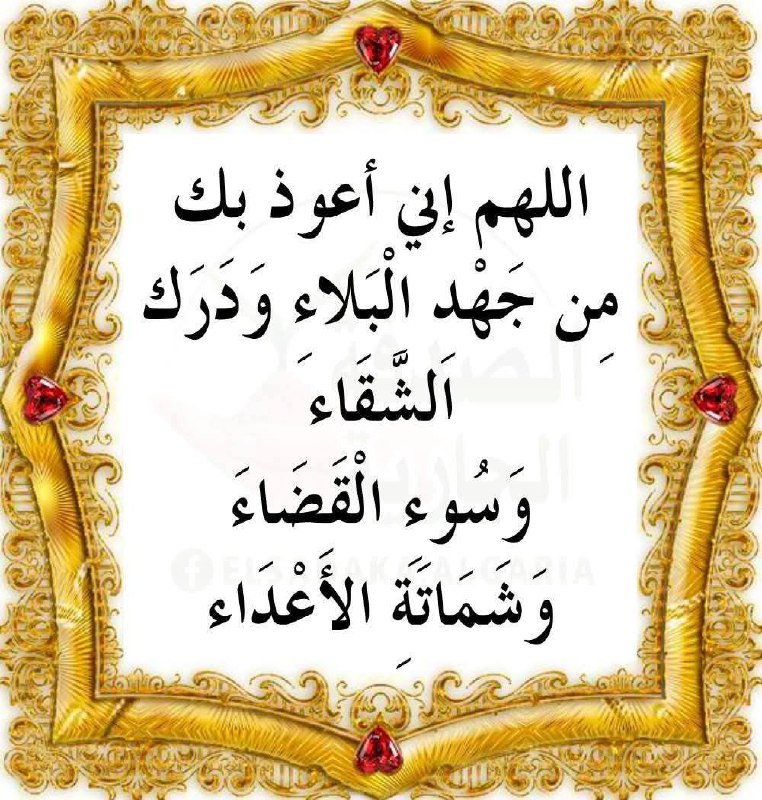 اللهم إني أعوذ بك
مِن جَهْد الْبَلاءِ وَدَرَك
اَلشَّقَاءِ
وَسُوء الْقَضَاءَ
وَشَمَاتَةَِ الأَعْدَاء
الصدقة
الجارية
ELSADAKA ALGARIA